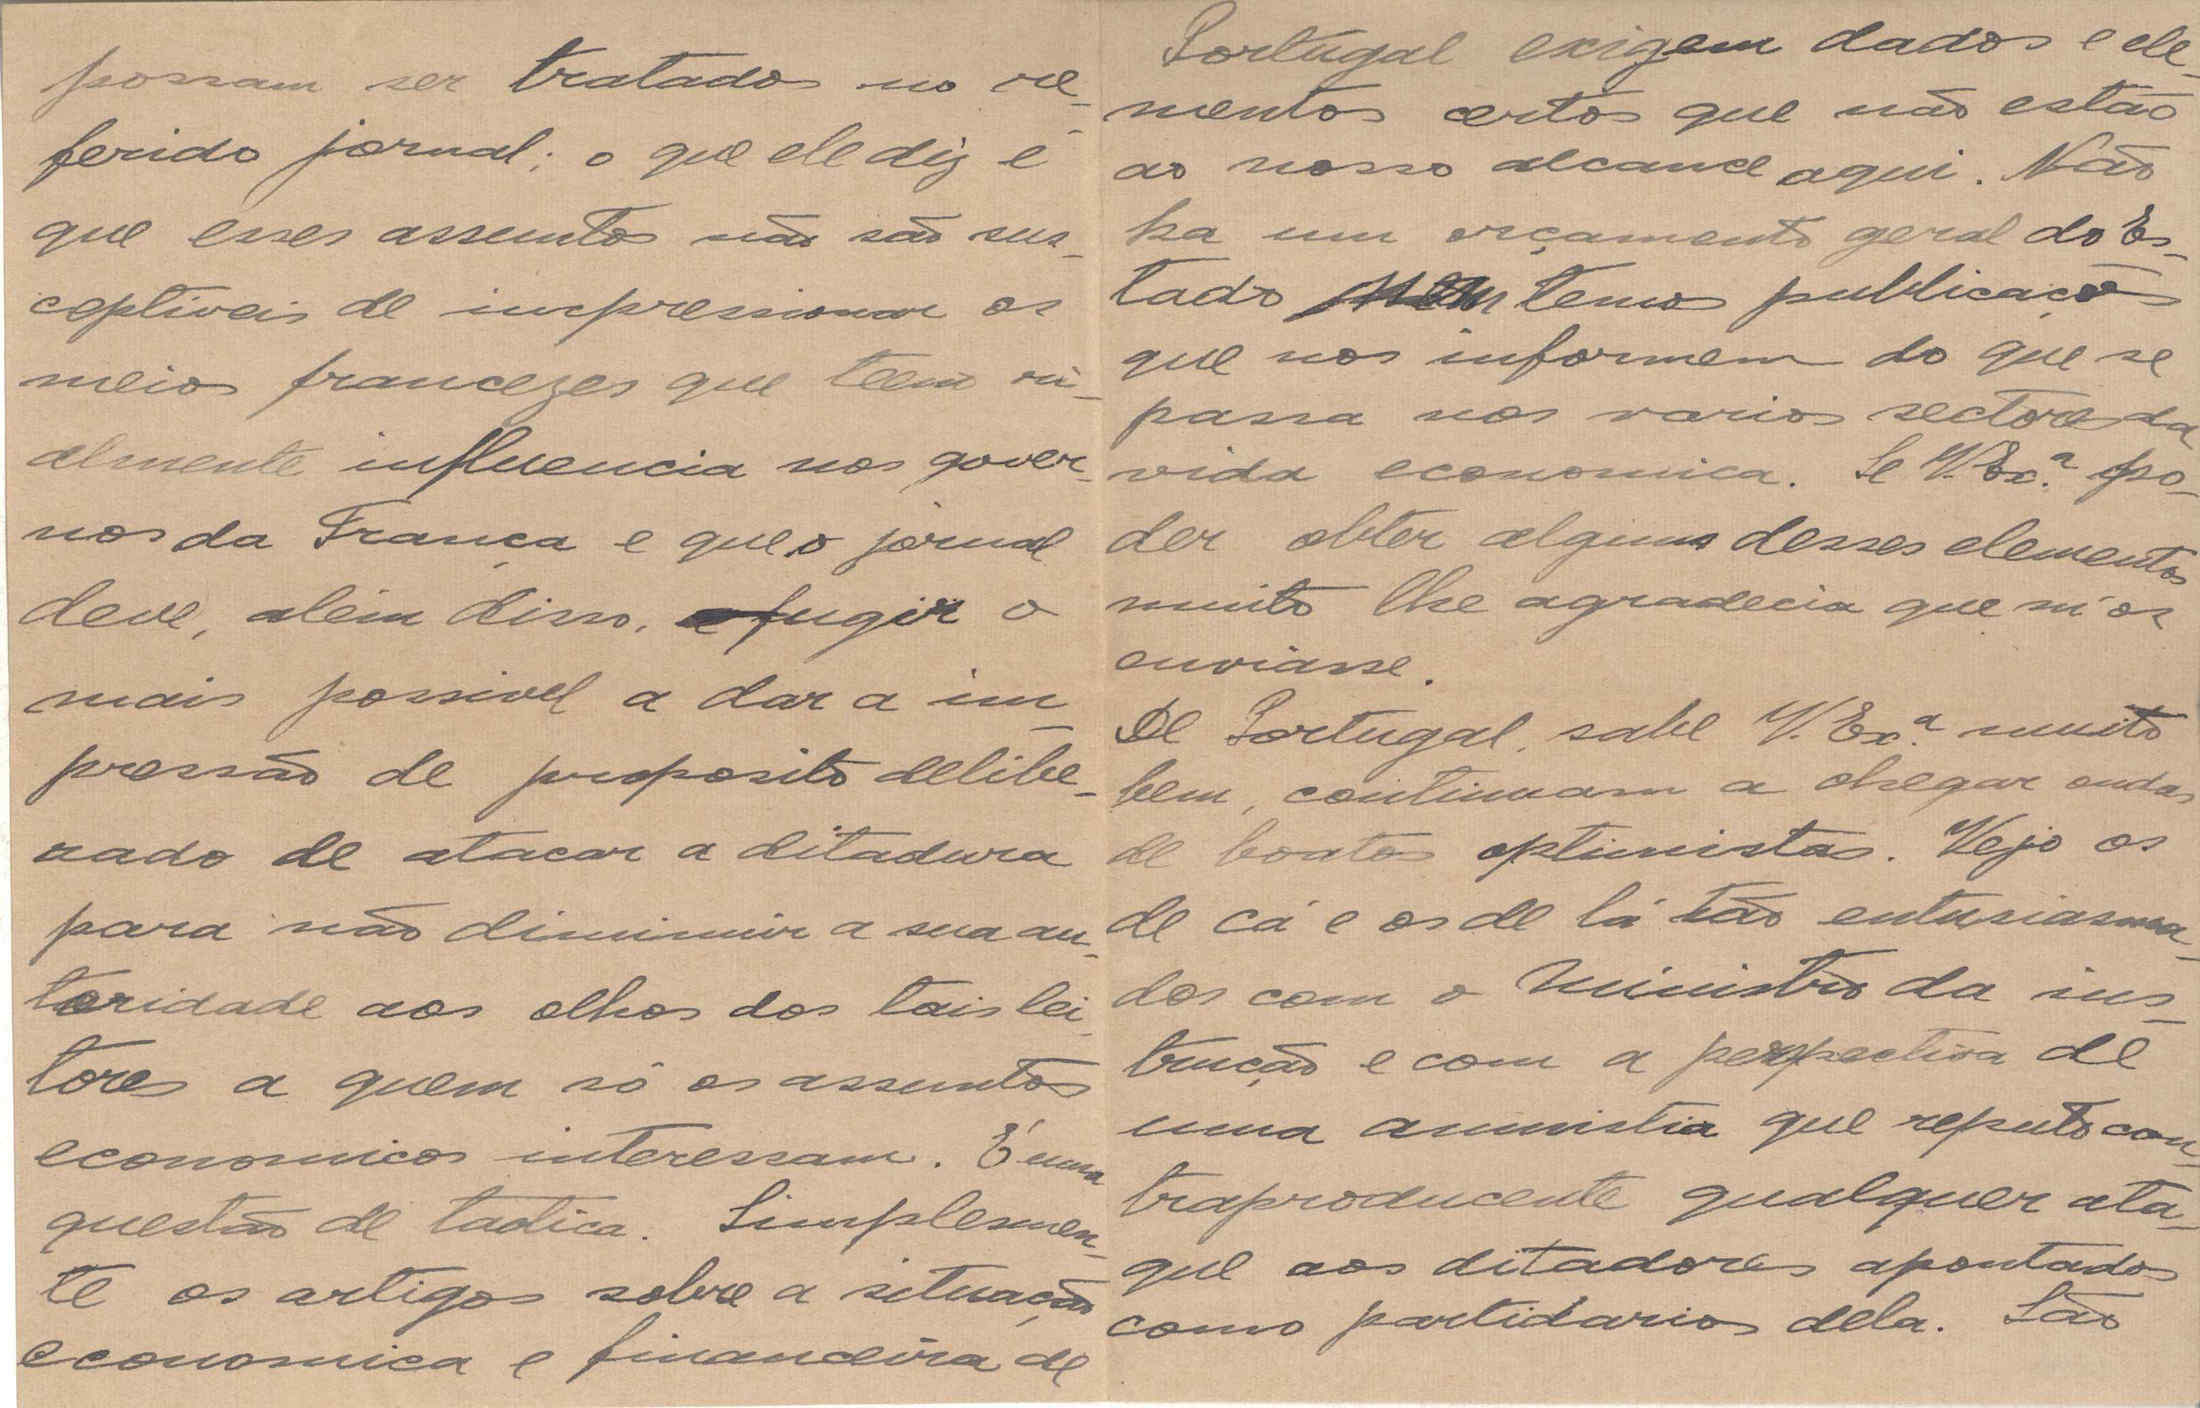 possam ser tratados no re-
ferido jornal; o que ele diz é
que esses assuntos não são sus-
ceptiveis de impressionar os
meios francezes que teem ri-
almente influencia nos gover-
nos da França e que o jornal
deve, além disso, fugir o
mais possivel a dar a im-
pressão de proposito delibe-
rado de atacar a ditadura
para não diminuir a sua au-
toridade aos olhos dos tais lei-
tores a quem só os assuntos
economicos interessam. É uma
questão de tactica. Simplesmen-
te os artigos sobre a situação
economica e financeira de
Portugal exigem dados e ele-
mentos certos que não estão
ao nosso alcance aqui. Não
ha um orçamento geral do Es-
tado nem temos publicações
que nos informem do que se
passa nos varios sectores da
vida economica. Se V. Ex.ª po-
der obter alguns desses elementos
muito lhe agradecia que m'os
enviasse.
De Portugal, sabe V. Ex.ª muito
bem, continuam a chegar ondas
de boatos optimistas. Vejo os
de cá e os de lá tão entusiasma-
dos com o Ministro da ins-
trução e com a perspectiva de
uma amnistia que reputo con-
traproducente qualquer ata-
que aos ditadores apontados
como partidarios dela. São